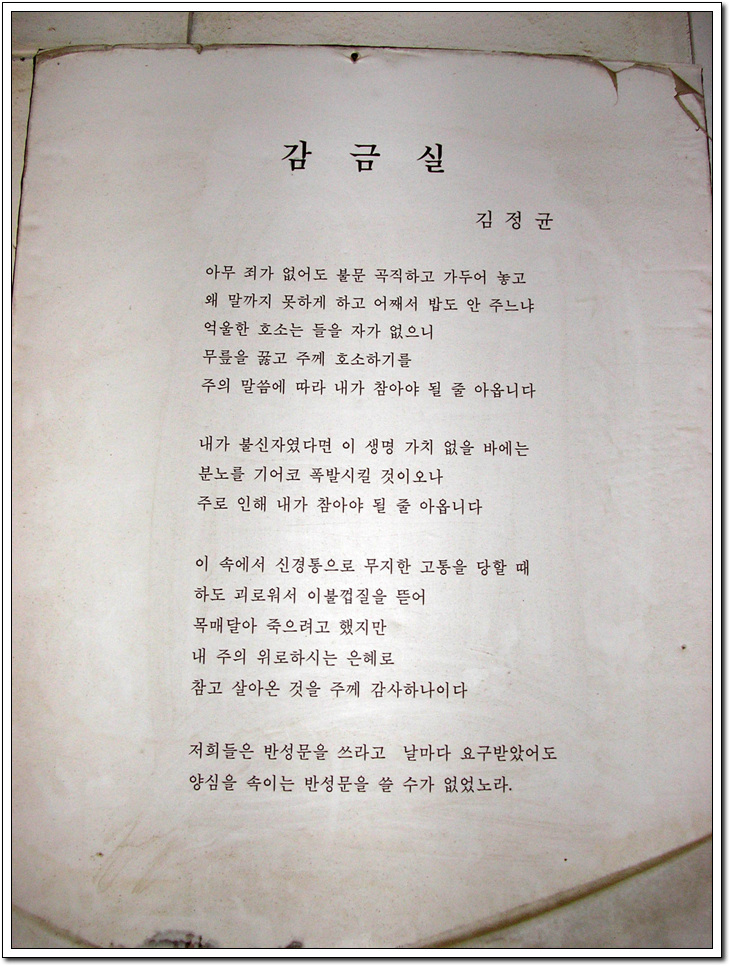 감 금 실
김 정 균
아무 죄가 없어도 불문 곡직하고 가두어 놓고
왜 말까지 못하게 하고 어째서 밥도 안 주느냐
억울한 호소는 들을 자가 없으니
무릎을 꿇고 주께 호소하기를
주의 말씀에 따라 내가 참아야 될 줄 아옵니다
내가 불신자였다면 이 생명 가치 없을 바에는
분노를 기어코 폭발시킬 것이오나
주로 인해 내가 참아야 될 줄 아옵니다
이 속에서 신경통으로 무지한 고통을 당할 때
하도 괴로워서 이불껍질을 뜯어
목매달아 죽으려고 했지만
내 주의 위로하시는 은혜로
참고 살아온 것을 주께 감사하나이다
저희들은 반성문을 쓰라고 날마다 요구받았어도
양심을 속이는 반성문을 쓸 수가 없었노라.